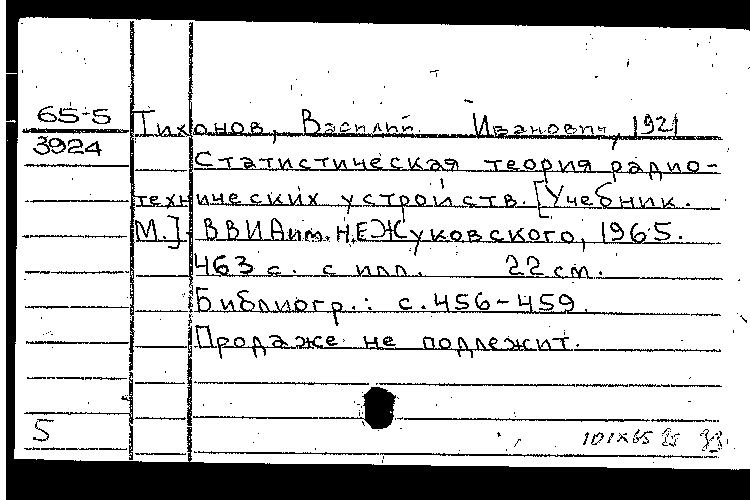 65-5 Тихонов, Василий Иванович, 1921
3924 Статистическая теория радио-
технических устройств. [Учебник.
М.]. ВВИА им. Н.Е.Жуковского, 1965.
463 с. с илл. 22 см.
Библиогр.: с. 456-459.
Продаже не подлежит.
5